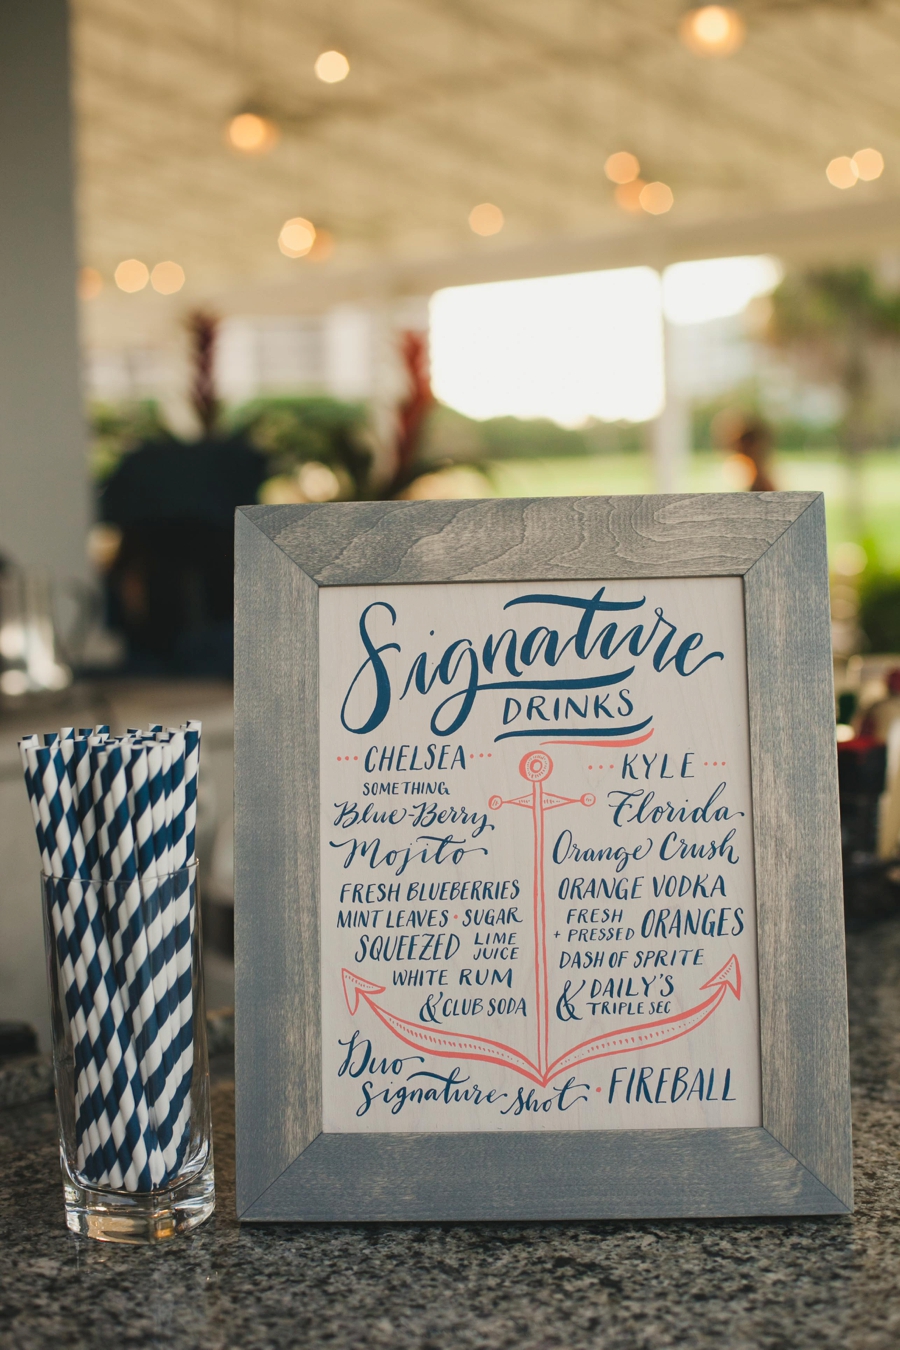 Signature
DRINKS
CHELSEA
SOMETHING
Blue-Berry
Mojito
FRESH BLUEBERRIES
MINT LEAVES • SUGAR
SQUEEZED LIME JUICE
WHITE RUM
& CLUB SODA
KYLE
Florida
Orange Crush
ORANGE VODKA
FRESH + PRESSED ORANGES
DASH OF SPRITE
& DAILY'S TRIPLE SEC
Duo
Signature Shot • FIREBALL